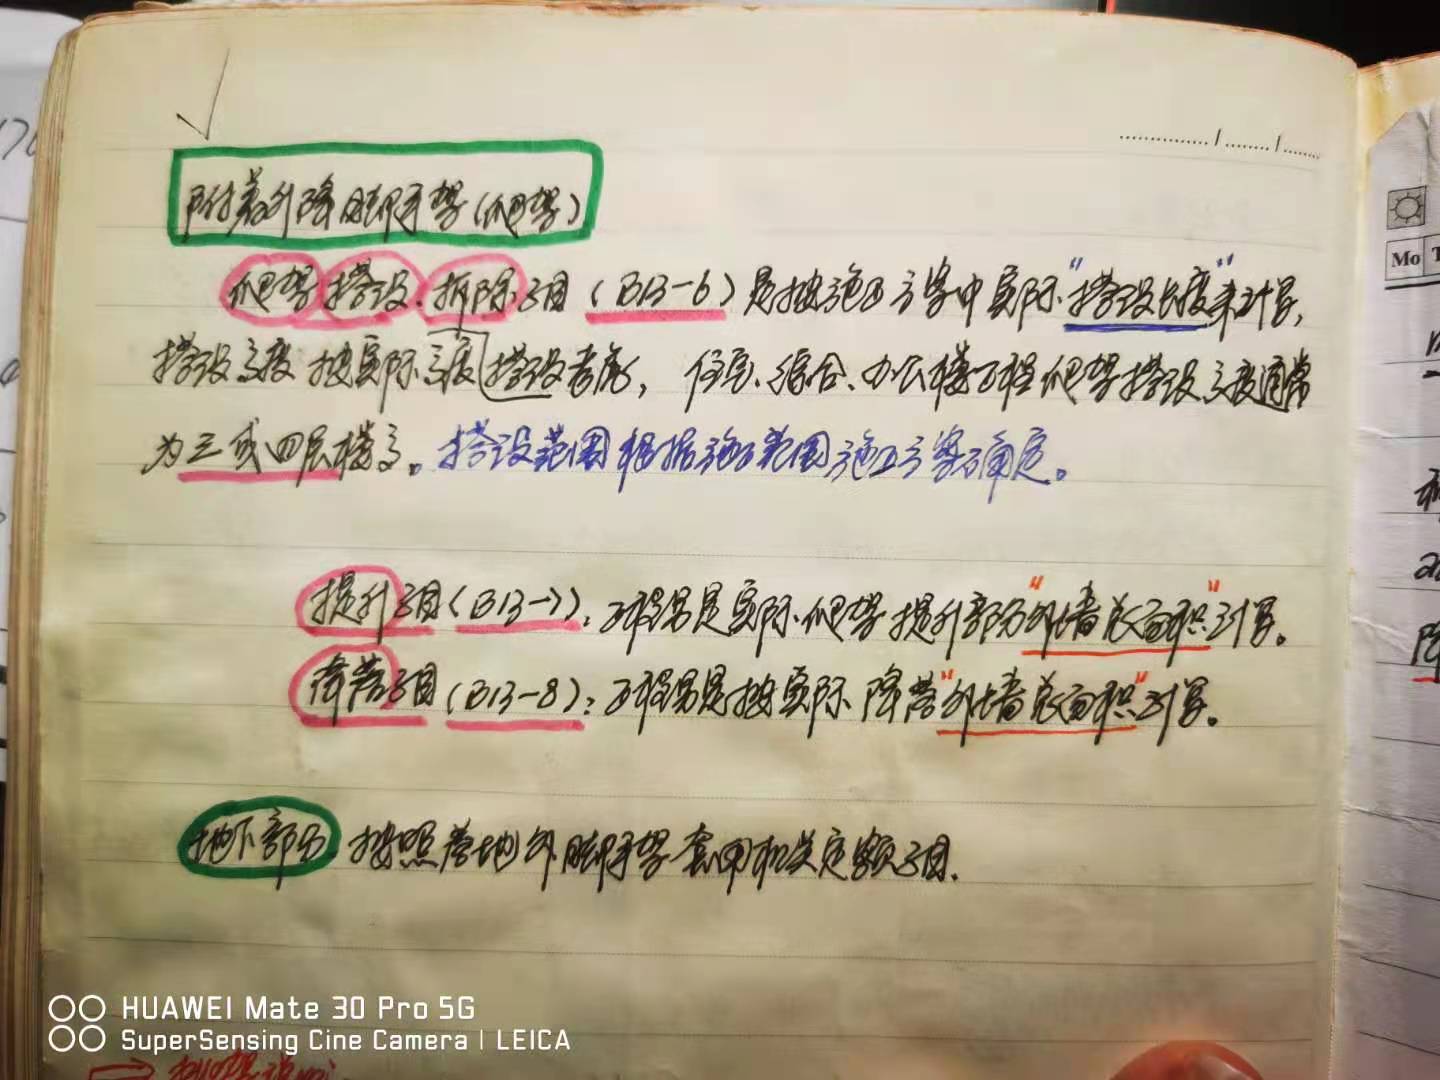 附着升降脚手架(爬架)
爬架搭设、拆除子目(B13-6)是按施工方案中实际"搭设长度"来计算,
搭设高度按实际高度搭设考虑,住宅、综合、办公楼工程爬架搭设高度通常
为三或四层楼高。搭设范围根据施工范围施工方案确定。
提升子目(B13-7):工程量是实际爬架提升部分"外墙总面积"计算。
降落子目(B13-8):工程量是按实际降落"外墙总面积"计算。
地下部分 按照落地外脚手架套用相关定额子目.
Mo
HUAWEI Mate 30 Pro 5G
SuperSensing Cine Camera | LEICA